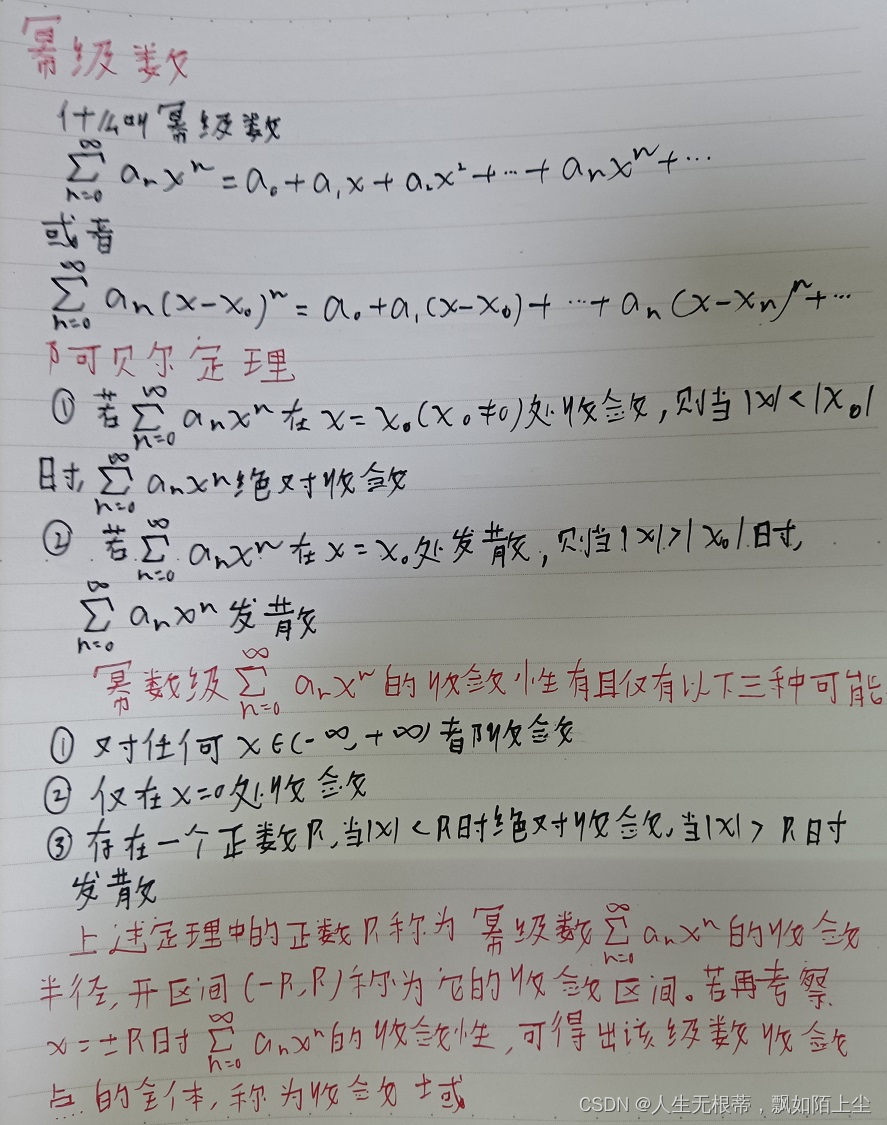 幂级数
什么叫幂级数
∑_{n=0}^{∞} aₙxⁿ = a₀ + a₁x + a₂x² + ⋯ + aₙxⁿ + ⋯
或者
∑_{n=0}^{∞} aₙ(x-x₀)ⁿ = a₀ + a₁(x-x₀) + ⋯ + aₙ(x-xₙ)ⁿ + ⋯
阿贝尔定理
① 若∑_{n=0}^{∞} aₙxⁿ在x=x₀(x₀≠0)处收敛,则当|x|<|x₀|
时,∑_{n=0}^{∞} aₙxⁿ绝对收敛
② 若∑_{n=0}^{∞} aₙxⁿ在x=x₀处发散,则当|x|>|x₀|时,
∑_{n=0}^{∞} aₙxⁿ发散
幂数级∑_{n=0}^{∞} aₙxⁿ的收敛性有且仅有以下三种可能
① 对任何x∈(-∞,+∞)都收敛
② 仅在x=0处收敛
③ 存在一个正数R,当|x|<R时绝对收敛,当|x|>R时
发散
上述定理中的正数R称为幂级数∑_{n=0}^{∞} aₙxⁿ的收敛
半径,开区间(-R,R)称为它的收敛区间。若再考察
x=±R时∑_{n=0}^{∞} aₙxⁿ的收敛性,可得出该级数收敛
点的全体,称为收敛域
CSDN @人生无根蒂,飘如陌上尘